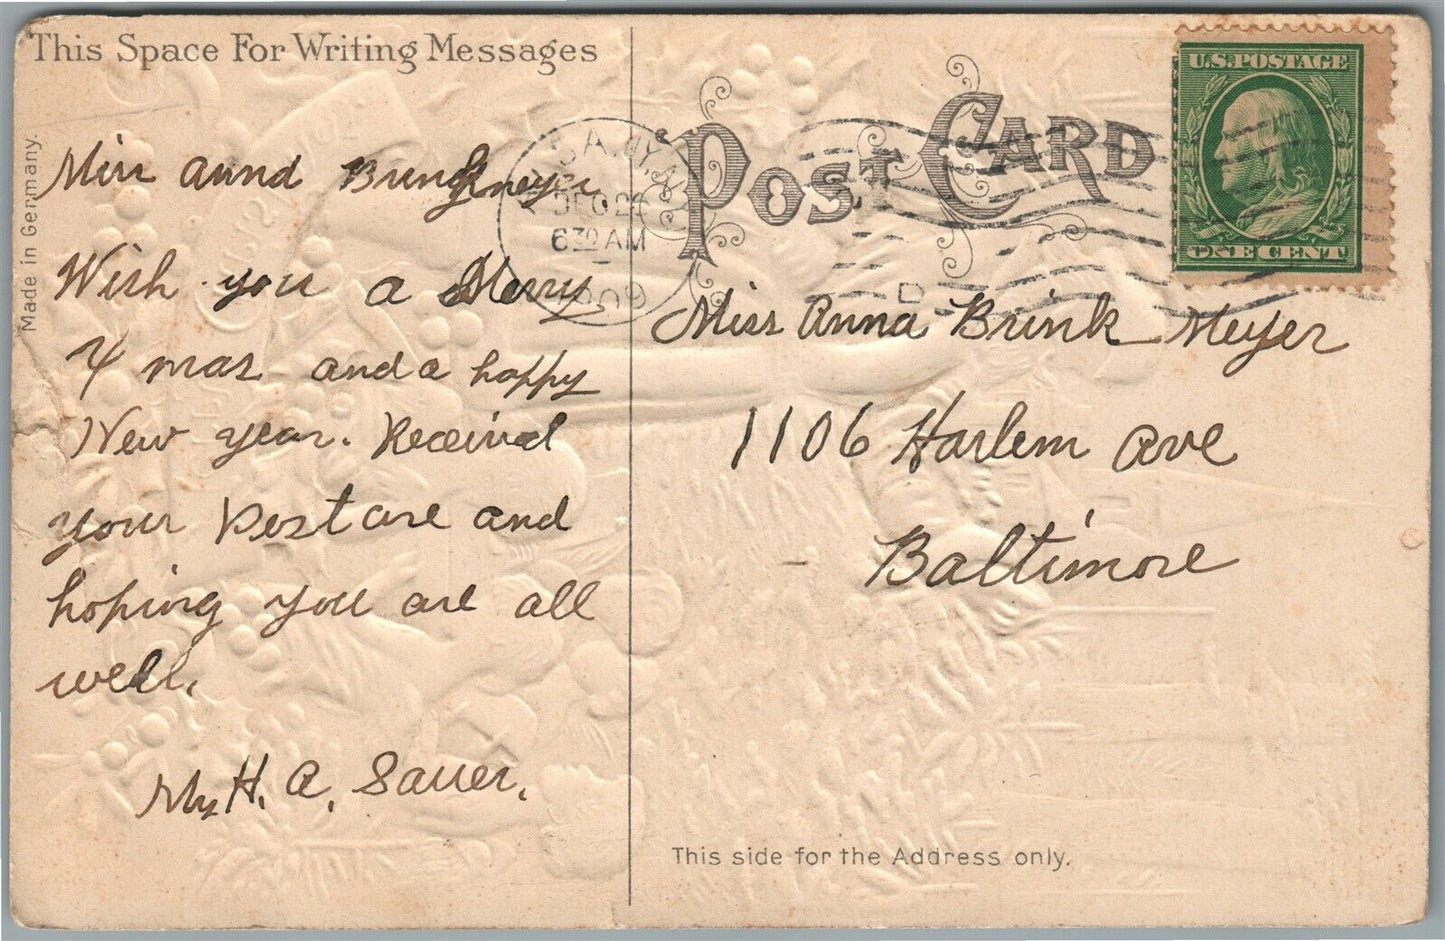 This Space For Writing Messages
Made in Germany.
POST CARD
U.S. POSTAGE
ONE CENT
DEC 2
6 30 AM
1909
D
Miss Annd
Wish you a Merry
Xmas and a happy
New year. Received
your Postcare and
hoping you are all
well.
H. A. Sauer.
Miss Anna Brink Meyer
1106 Harlem Ave
Baltimore
This side for the Address only.